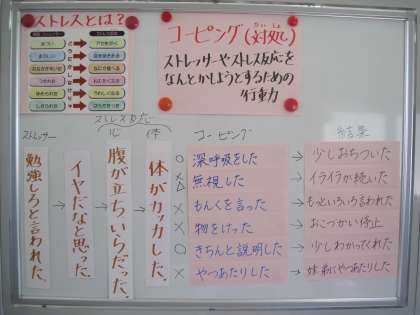 ストレスとは？
コーピング(対処)
たいしょ
ストレッサーやストレス反応を
なんとかしようとするための
行動力
ストレス反応
ストレッサー
心
体
コーピング
結果
勉強しろと言われた。
→
イヤだなと思った。
→
腹が立ちいらだった。
体がカッカした。
○ 深呼吸をした → 少しおちついた
無視した → イライラが続いた
× もんくを言った → もっといろいろ言われた
× 物をけった → おこづかい停止
○ きちんと説明した → 少しわかってくれた
× やつあたりした → 妹弟にやつあたりした